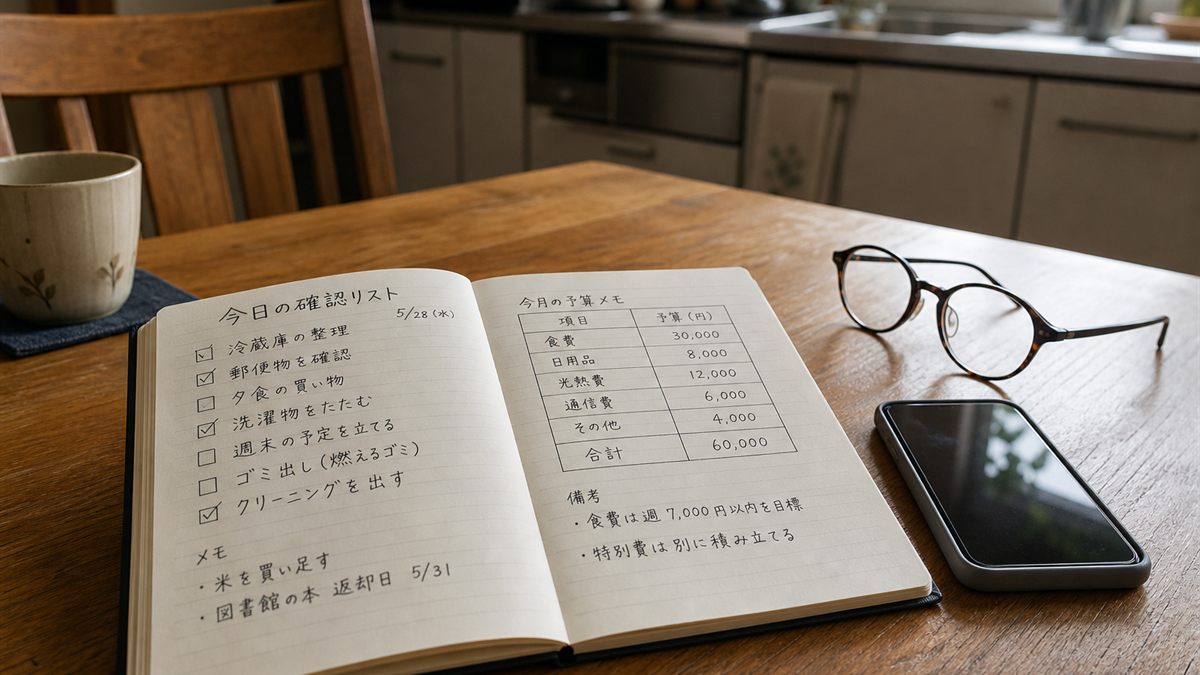 今日の確認リスト
5/28(水)
☑ 冷蔵庫の整理
☑ 郵便物を確認
☐ 夕食の買い物
☑ 洗濯物をたたむ
☐ 週末の予定を立てる
☐ ゴミ出し(燃えるゴミ)
☑ クリーニングを出す
メモ
・米を買い足す
・図書館の本 返却日 5/31
今月の予算メモ
項目 予算(円)
食費 30,000
日用品 8,000
光熱費 12,000
通信費 6,000
その他 4,000
合計 60,000
備考
・食費は週7,000円以内を目標
・特別費は別に積み立てる